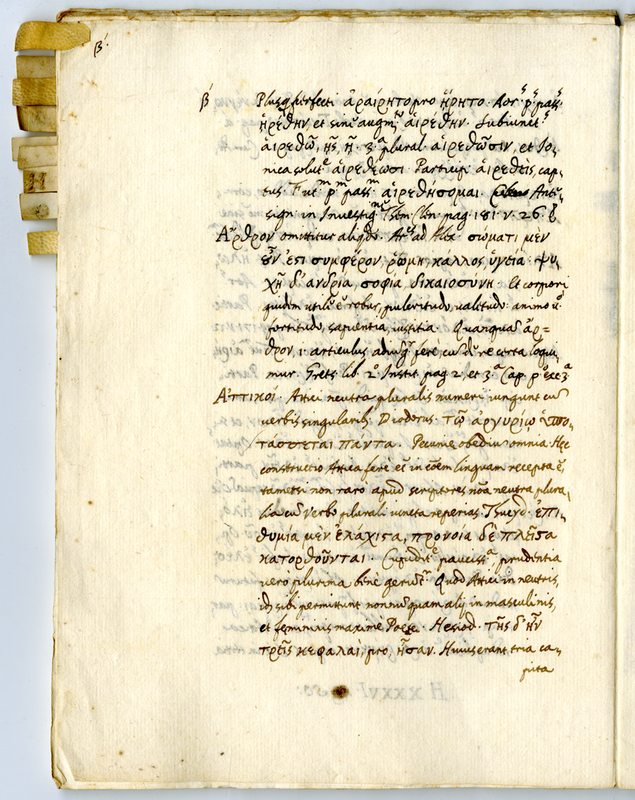 β´.
β´ Plusq̃perfecti ἀραίρητο pro ἥρητο. Aorˢ pˢ passˢ
ᾑρέθην, et sine augmᵗᵒ αἱρέθην. Subiunctˢ
αἱρεθῶ, ῇς, ῇ. 3ᵃ plural. αἱρεθῶσιν, et Io-
nica solutᵉ αἱρεθέωσι. Particip. αἱρεθεὶς, cap-
tus. Futᵐ pᵐ passᵐ αἱρεθήσομαι. Anti-
sign. in Investig. pag. 181. v. 26.
Ἄρθρον omittitur aliqdo. ad σώματι μὲν
οὖν ἐστι συμφέρον, ῥώμη, κάλλος, ὑγεία· ψυ-
χῇ δ' ἀνδρία, σοφία, δικαιοσύνη. Et corpori
quidem utile ẽ robur, pulcritudo, valitudo: animo ũ
fortitudo, sapientia, iustitia. Quanquã ἄρ-
θρον, i. articulus, fere cũ de re certa loqui-
mur. Grets. lib. 2º Instit. pag. 2. et 3ᵃ Cap.
Ἀττικοί. Attici neutra pluralis numeri iungunt cũ
verbis singularib. Diodorus. τῷ ἀργυρίῳ ὑπο-
τάσσεται πάντα. Pecuniæ obediunt omnia. Hæc
constructio Attica fere ẽt in cõem linguam recepta ẽ,
tametsi non raro apud scriptores nõa neutra plura-
lia cũ verbo plurali iuncta reperias. Thucyd. ἐπι-
θυμίᾳ μὲν ἐλάχιστα, προνοίᾳ δὲ πλεῖστα
κατορθοῦνται. Cupiditᵉ paucissᵃ prudentia
vero plurima bene gerũtʳ. Quod Attici in neutris,
id sibi permittunt nonnumquam alij in masculinis,
et femininis maxime Poetæ. Hesiod. τῆς δ' ἦν
τρεῖς κεφαλαί, pro, ἦσαν. Huius erant tria ca-
pita